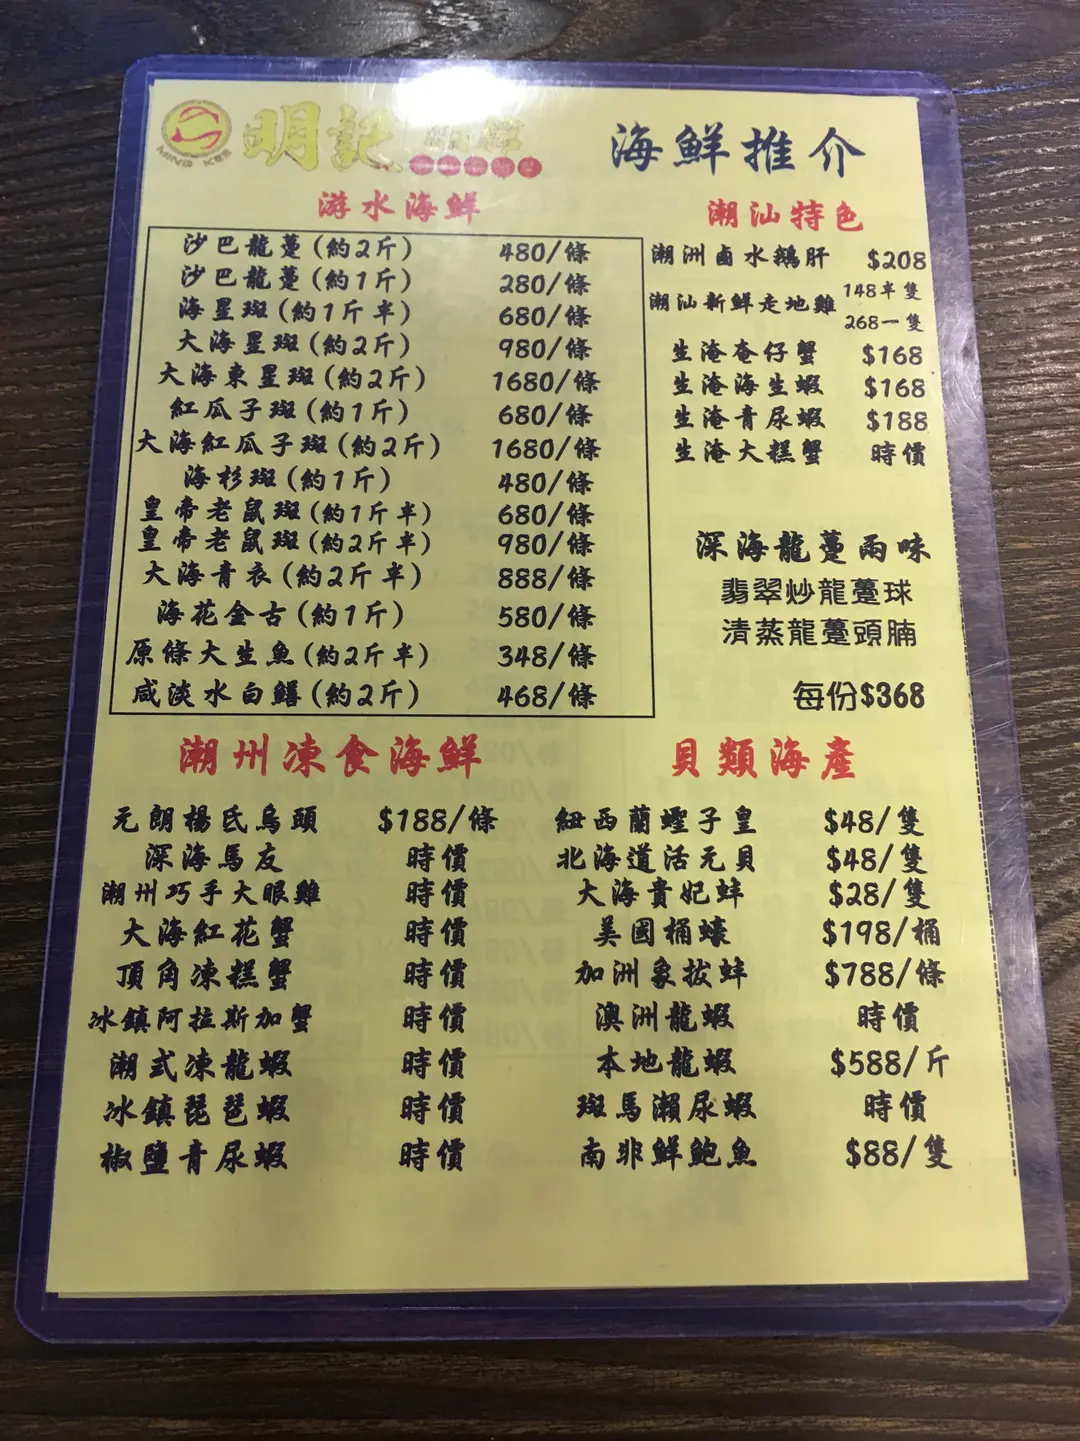 MING KEE
明記
海鮮推介
游水海鮮
沙巴龍躉(約2斤) 480/條
沙巴龍躉(約1斤) 280/條
海星斑(約1斤半) 680/條
大海星斑(約2斤) 980/條
大海東星斑(約2斤) 1680/條
紅瓜子斑(約1斤) 680/條
大海紅瓜子斑(約2斤) 1680/條
海杉斑(約1斤) 480/條
皇帝老鼠斑(約1斤半) 680/條
皇帝老鼠斑(約2斤半) 980/條
大海青衣(約2斤半) 888/條
海花金古(約1斤) 580/條
原條大生魚(約2斤半) 348/條
咸淡水白鱔(約2斤) 468/條
潮汕特色
潮洲鹵水鵝肝 $208
潮汕新鮮走地雞 148半隻
268一隻
生淹奄仔蟹 $168
生淹海生蝦 $168
生淹青尿蝦 $188
生淹大糕蟹 時價
深海龍躉兩味
翡翠炒龍躉球
清蒸龍躉頭腩
每份$368
潮州凍食海鮮
元朗楊氏烏頭 $188/條
深海馬友 時價
潮州巧手大眼雞 時價
大海紅花蟹 時價
頂角凍糕蟹 時價
冰鎮阿拉斯加蟹 時價
潮式凍龍蝦 時價
冰鎮琵琶蝦 時價
椒鹽青尿蝦 時價
貝類海產
紐西蘭蟶子皇 $48/隻
北海道活元貝 $48/隻
大海貴妃蚌 $28/隻
美國桶蠔 $198/桶
加洲象拔蚌 $788/條
澳洲龍蝦 時價
本地龍蝦 $588/斤
斑馬瀨尿蝦 時價
南非鮮鮑魚 $88/隻